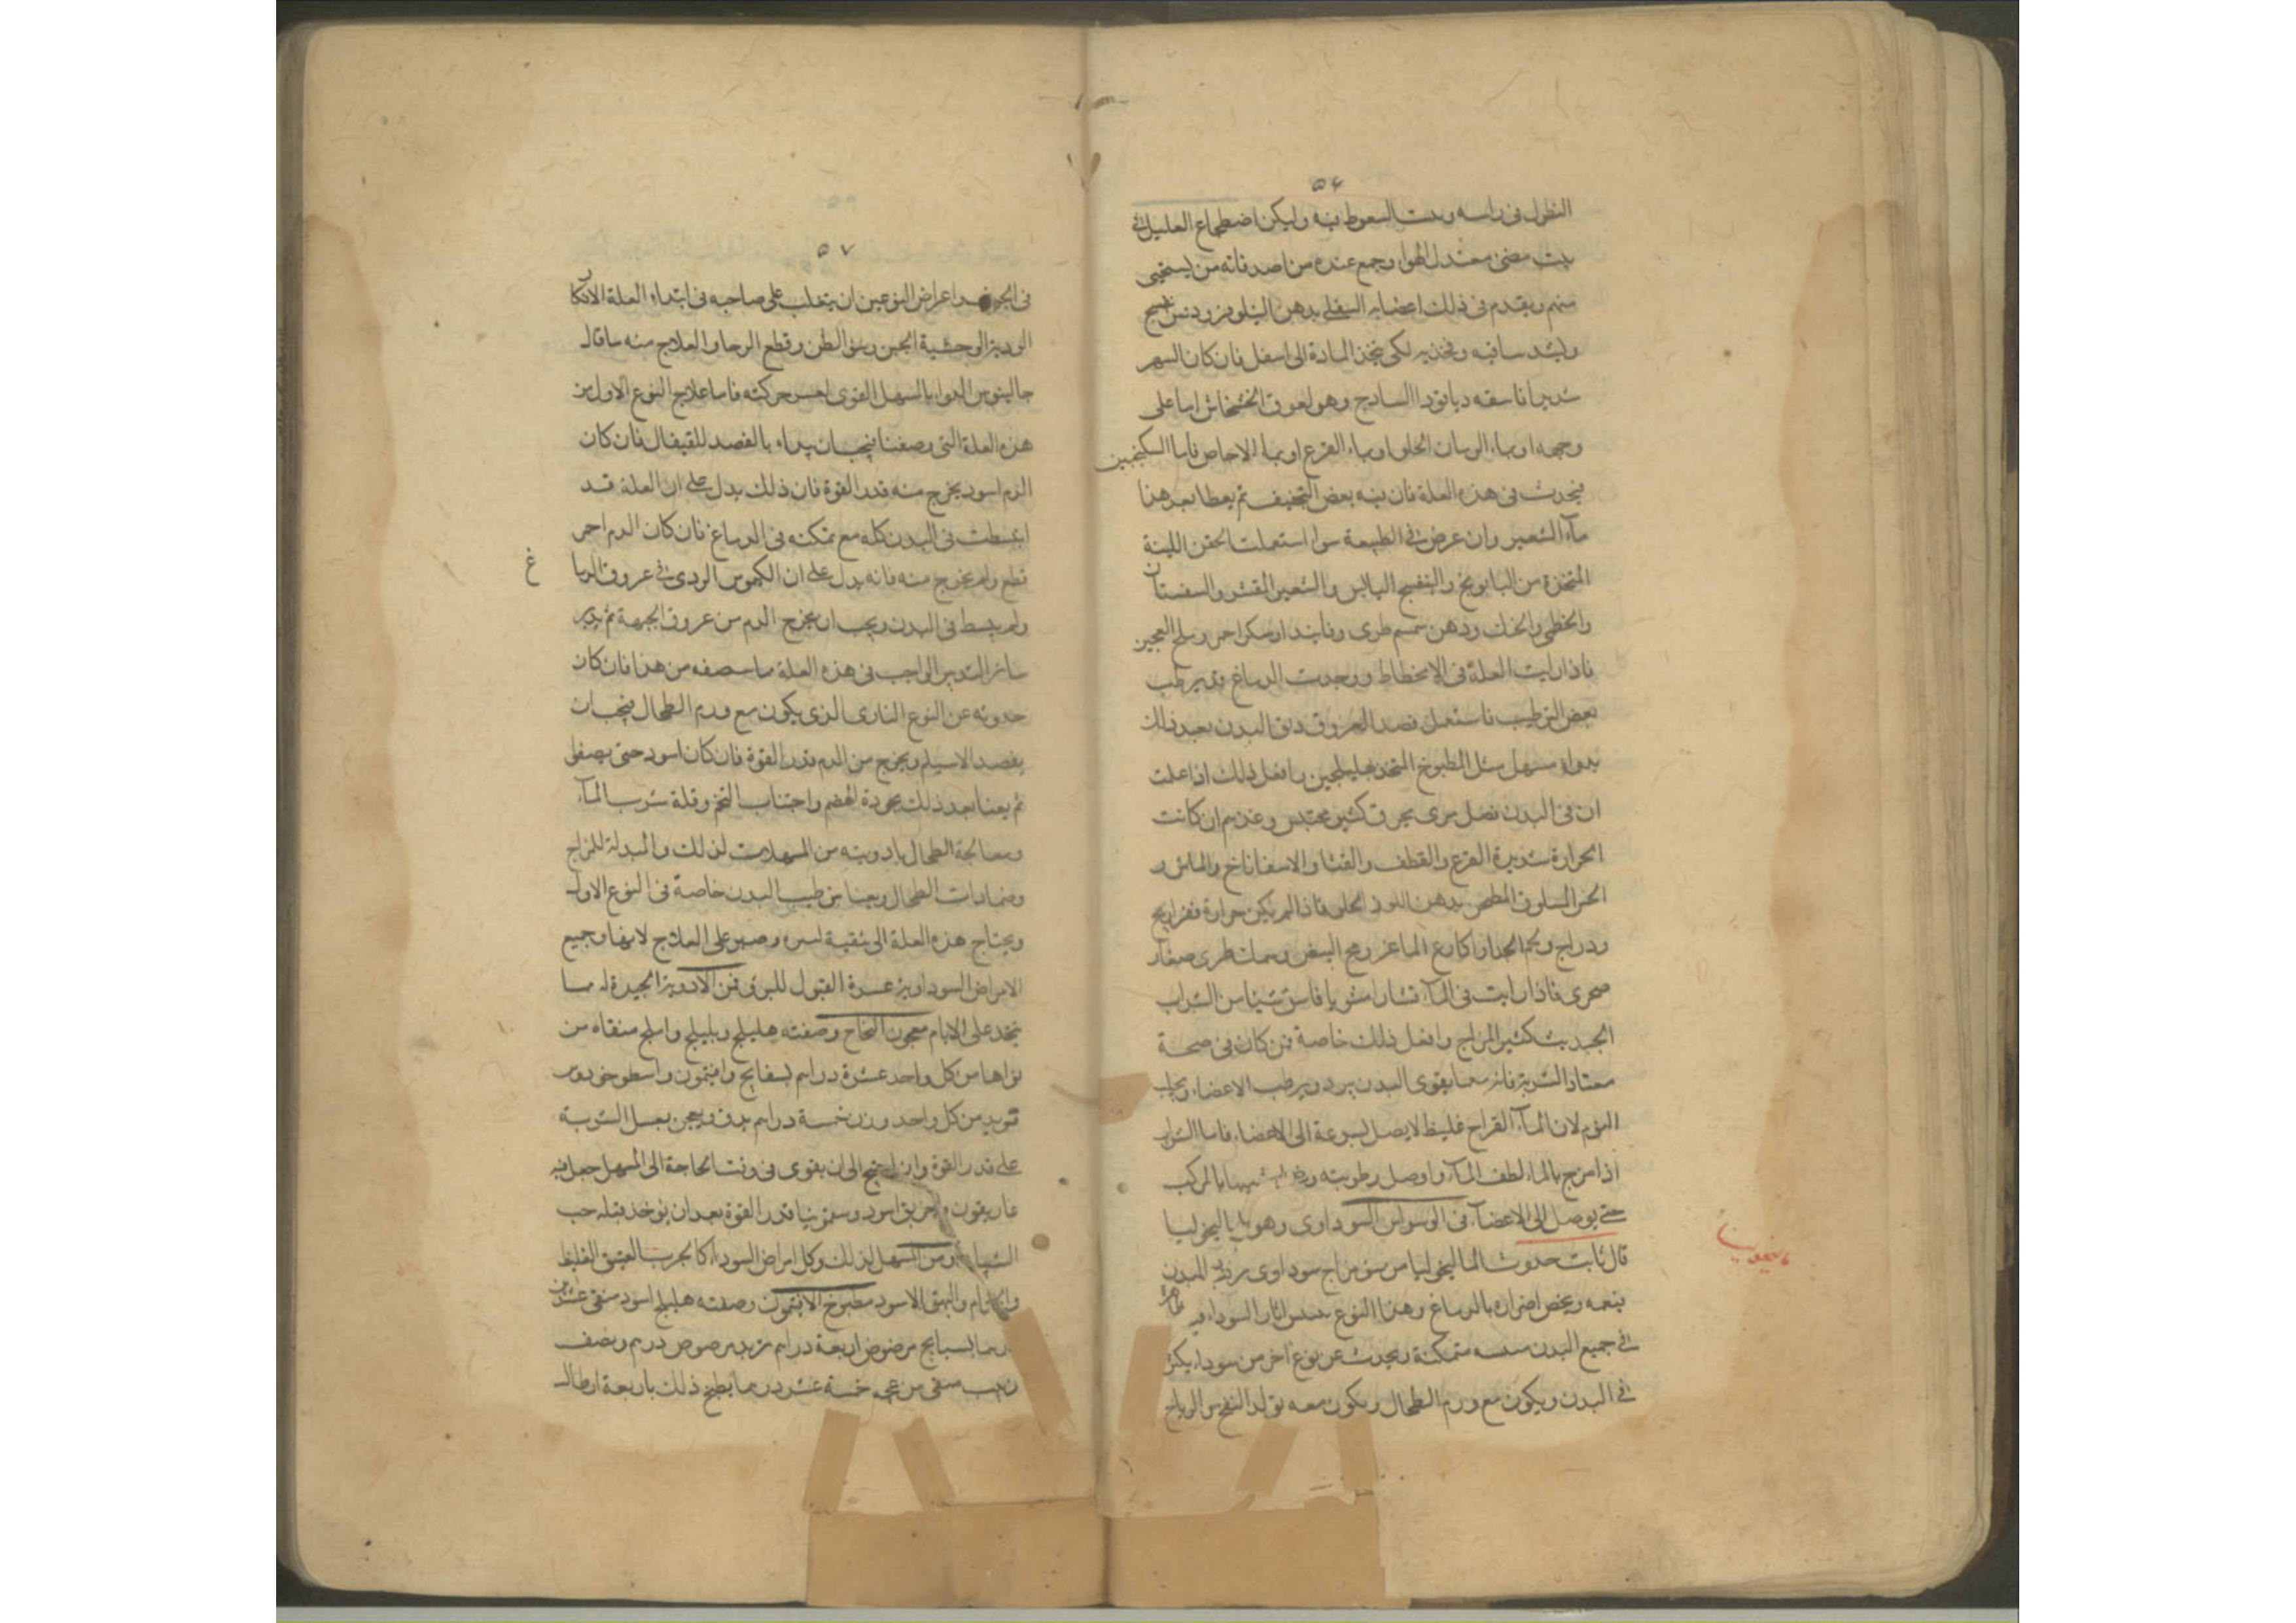 ٥٦
النطول في راسه وست السعوط فيه وليكن اضطجاع العليل في
بيت مضى معتدل الهواء وجمع عنده من اصدقائه من يستحيى
منهم ويقدم في ذلك اعضائه السفلى بدهن النيلوفر ودهن بنفسج
وليشد ساقيه وفخذيه لكى ينجذب المادة الى اسفل فان كان السهر
شديدا فاسقه دياقودا الساذج وهو لعوق الخشخاش اما على
وجهه او بماء الرمان الحلو او بماء القرع او بماء الاجاص فاما السكنجبين
فيحدث في هذه العلة فان فيه بعض التجفيف ثم يعطا بعد هذا
ماء الشعير وان عرض في الطبيعة سوا استعملت الحقن اللينة
المتخذة من البابونج والبنفسج اليابس والشعير المقشر والسفستان
والخطمى ودهن سمسم طرى وفانيد او سكر احمر وملح العجين
فاذا رايت العلة في الانحطاط ووجدت الدماغ قد ترطب
بعض الترطيب فاستعمل فصد العروق ونق البدن بعد ذلك
بدواء مسهل مثل المطبوخ المتخذ بهليلجين وافعل ذلك اذا علمت
ان في البدن فضل مرى محرق كثير محتبس وغذهم ان كانت
الحرارة شديدة القرع والقطف والقثا والاسفاناخ والماش و
الخس المسلوق المطجن بدهن اللوز الحلو فاذا لم يكن حرارة ففراريج
ودراج ولحم الجدا واكارع الماعز ومح البيض وسمك طرى صغار
صخرى فاذا رايت في الماء فاسق شيئا من الشراب
الحديث كثير المزاج وافعل ذلك خاصة فمن كان في صحة
معتاد الشربة فانه مما يقوى البدن ويرطب الاعضاء ويجلب
النوم لان الماء القراح غليظ لا يصل بسرعة الى الاعضاء فاما الشراب
اذا مزج بالماء لطف الماء واوصل رطوبته بالمركب
حتى يوصل الى الاعضاء في الوسواس السوداوى وهو باب الماليخوليا
قال ثابت حدوث الماليخوليا من سوء مزاج سوداوى في البدن
بنعمه ويخص اضراره بالدماغ وهذا النوع اثار السوداء فيه ظاهرة
في جميع البدن متمكنة ويحدث عن نوع اخر من سوداء يكثر
في البدن ويكون مع ورم الطحال ويكون معه تولد النفخ من الرياح
٥٧
في الجوف اعراض النوعين ان يتغلب على صاحبه في ابتداء العلة الافكار
الردية الوحشية الجبن وسوء الظن وقطع الرجا والعلاج منه ما قال
جالينوس الدواء بالمسهل القوى لعسر حركته فاما علاج النوع الاول من
هذه العلة التي وصفنا فيجب ان يبداء بالفصد للقيفال فان كان
الدم اسود يخرج منه قدر القوة فان ذلك يدل على ان العلة قد
انبسطت في البدن كله مع تمكنه في الدماغ فان كان الدم احمر
قطع ولم يخرج منه فانه يدل على ان الكيموس الردى في عروق الدما غ
ولم ينبسط في البدن ويجب ان يخرج الدم من عروق الجبهة ثم يدبر
سائر التدبير الواجب في هذه العلة ما سنصفه من هذا فان كان
حدوثه عن النوع الثاني الذى يكون مع ورم الطحال فيجب ان
يفصد الاسيلم ويخرج من الدم قدر القوة فان كان اسود حتى يصفا
ثم يعنا بعد ذلك بجودة الهضم واجتناب التخم وقلة شرب الماء
ومعالجة الطحال بادويته من المسهلات لذلك والمبدلة للمزاج
وضمادات الطحال ويعنا بترطيب البدن خاصة في النوع الاول
ويحتاج هذه العلة الى تنقية وصبر على العلاج لانها وجميع
الامراض السوداوية عسرة القبول للبرء فمن الادوية الجيدة له ما
يتخذ على الايام معجون النجاح وصفته هليلج وبليلج واملج منقاه من
نواها من كل واحد عشرة دراهم بسفايج وافتيمون واسطوخودوس
تربد من كل واحد وزن خمسة دراهم يدق ويعجن بعسل الشربة
على قدر القوة وان احتيج الى ان يقوى في وقت الحاجة الى المسهل جعل فيه
غاريقون وخربق اسود وسقمونيا قدر القوة بعد ان يوخذ قبله حب
ومن المسهل لذلك وكل امراض السوداء كالجرب العتيق الغليظ
والبهق الاسود مطبوخ الافتيمون وصفته هليلج اسود منقى عشرين
درهما بسبايج مرضوض اربعة دراهم تربد مرضوض درهم ونصف
زبيب منقى من عجمه خمسة عشر درهما يطبخ ذلك باربعة ارطال